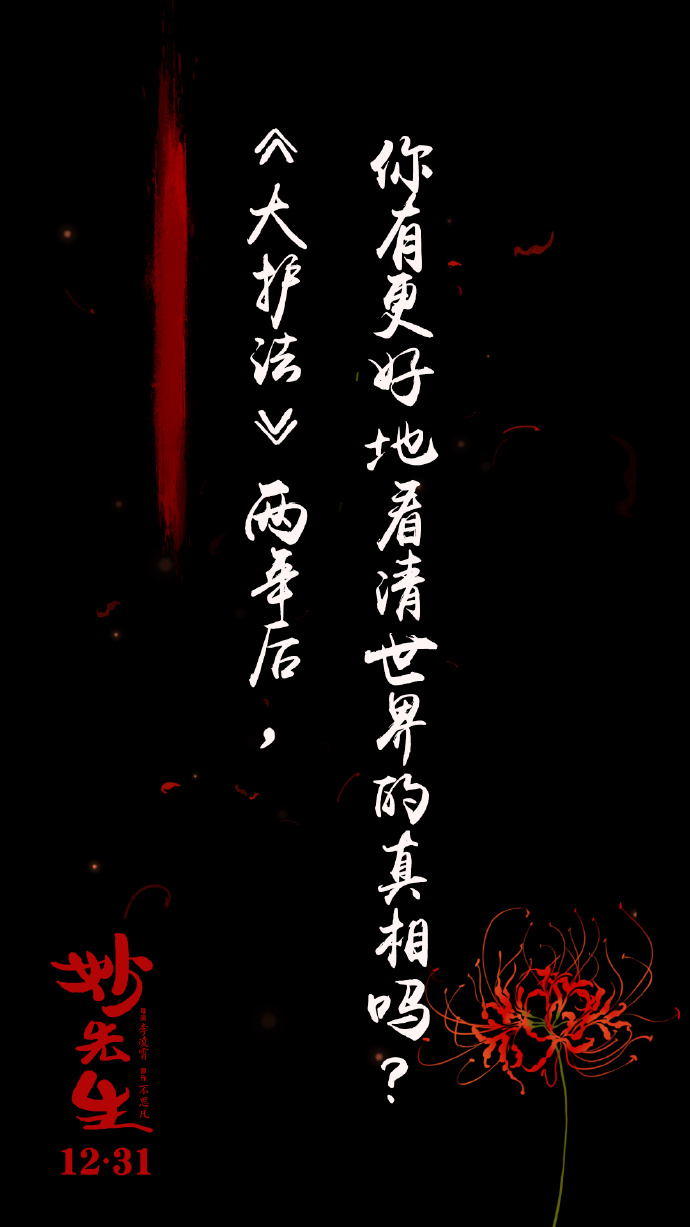 《大护法》两年后，
你有更好地看清世界的真相吗？
妙先生
李凌霄
不思凡
12·31